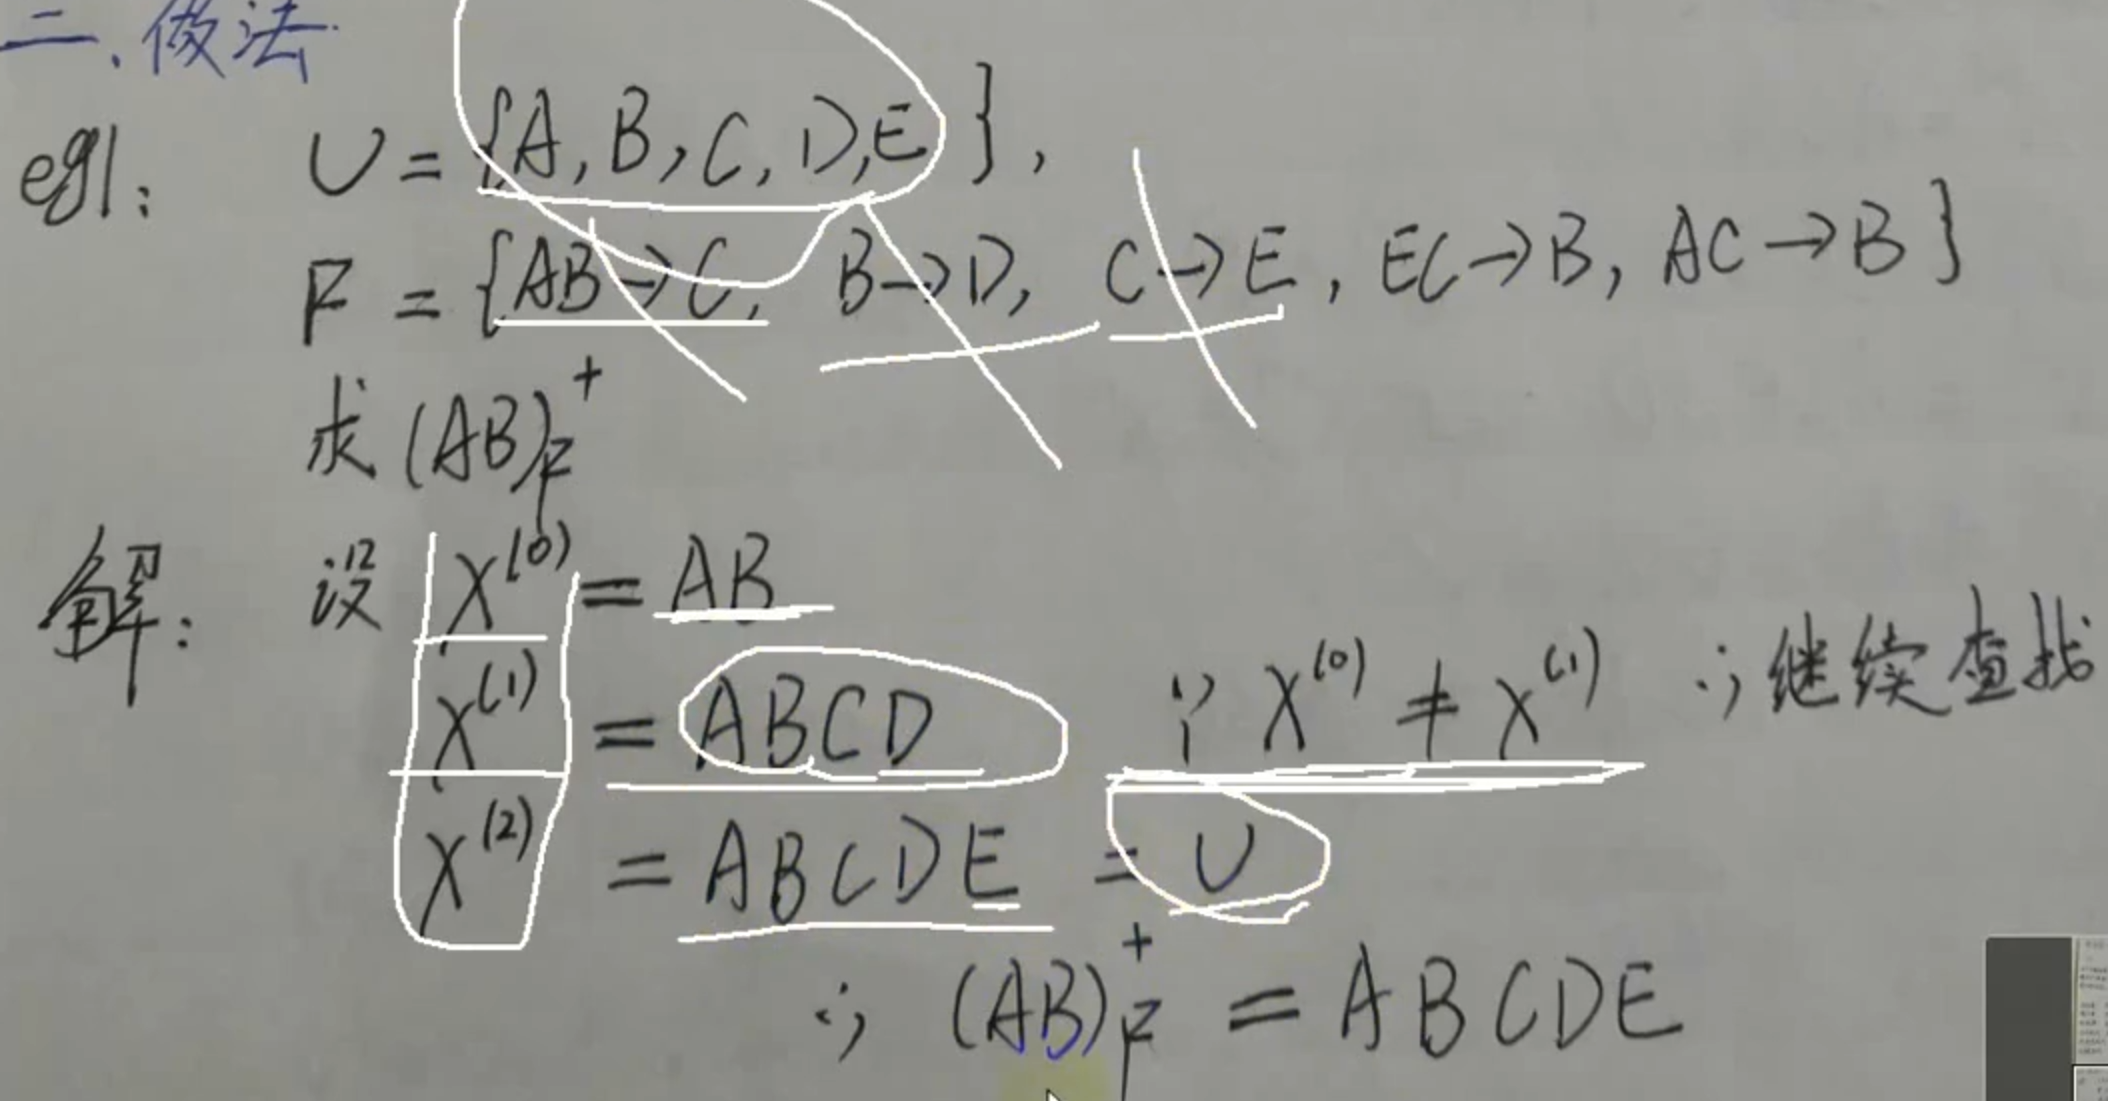 二、做法
eg1: U = {A, B, C, D, E},
F = {AB→C, B→D, C→E, EC→B, AC→B}
求 (AB)_F^+
解: 设 X^(0) = AB
X^(1) = ABCD ∵ X^(0) ≠ X^(1) ∴ 继续查找
X^(2) = ABCDE = U
∴ (AB)_F^+ = ABCDE